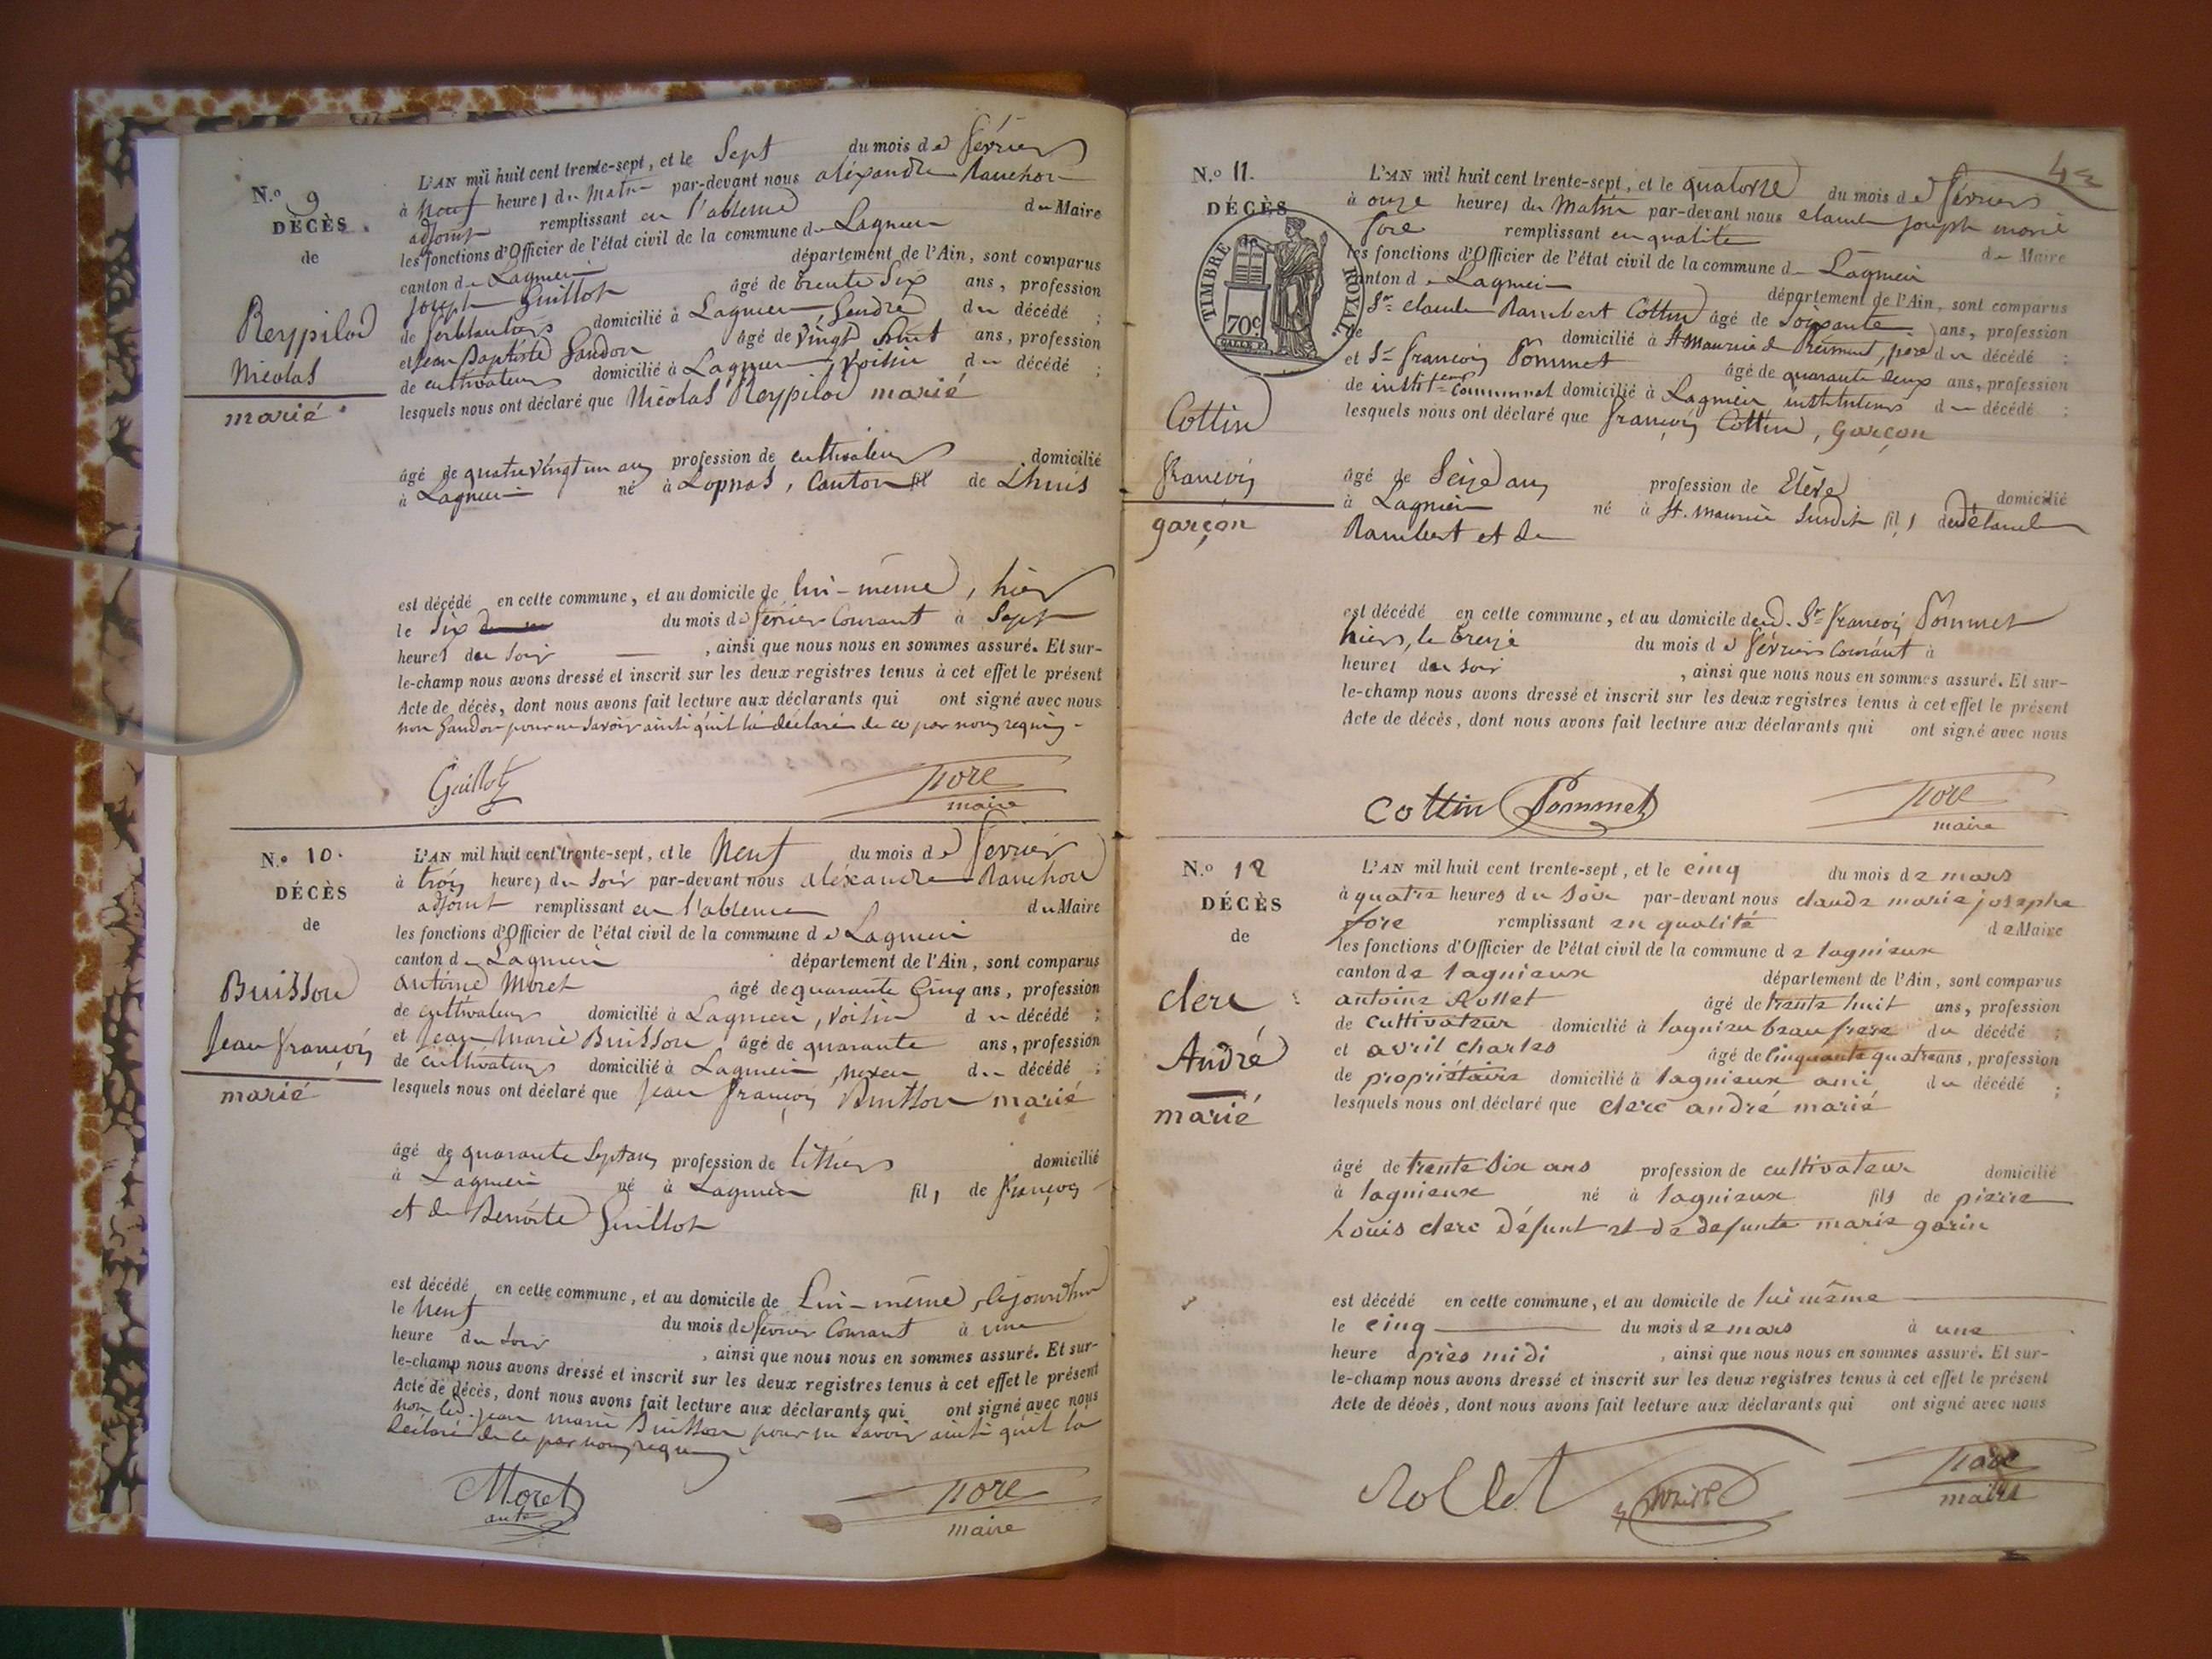 N.º 9
DÉCÈS
de
Reypilod
Nicolas
marié
L'AN mil huit cent trente-sept, et le Sept du mois de février
à neuf heures du matin par-devant nous alexandre Rauchon
adjoint remplissant en l'absence du Maire
les fonctions d'Officier de l'état civil de la commune de Lagnieu
canton de Lagnieu département de l'Ain, sont comparus
joseph Guillot âgé de trente Six ans, profession
de ferblantier domicilié à Lagnieu, Gendre du décédé ;
et jean Baptiste Gandon âgé de vingt ans, profession
de cultivateur domicilié à Lagnieu, voisin du décédé ;
lesquels nous ont déclaré que Nicolas Reypilod marié
âgé de quatre vingt un ans profession de cultivateur domicilié
à Lagnieu né à Lopnas, Canton de Lhuis
est décédé en cette commune, et au domicile de lui-même, hier
le Six du mois de février Courant à Sept
heures du Soir , ainsi que nous nous en sommes assuré. Et sur-
le-champ nous avons dressé et inscrit sur les deux registres tenus à cet effet le présent
Acte de décès, dont nous avons fait lecture aux déclarants qui ont signé avec nous
non Gandon pour ne savoir ainsi qu'il l'a déclaré de ce par nous requis.
Guillot fore
maire
N.º 10.
DÉCÈS
de
Buisson
Jean françois
marié
L'AN mil huit cent trente-sept, et le Neuf du mois de février
à trois heures du Soir par-devant nous alexandre Rauchon
adjoint remplissant en l'absence du Maire
les fonctions d'Officier de l'état civil de la commune de Lagnieu
canton de Lagnieu département de l'Ain, sont comparus
antoine Moret âgé de quarante Cinq ans, profession
de cultivateur domicilié à Lagnieu, voisin du décédé ;
et Jean Marie Buisson âgé de quarante ans, profession
de cultivateur domicilié à Lagnieu, neveu du décédé ;
lesquels nous ont déclaré que jean françois Buisson marié
âgé de quarante Sept ans profession de domicilié
à Lagnieu né à Lagnieu fils de françois
et de Benoite Guillot
est décédé en cette commune, et au domicile de Lui-même,
le Neuf du mois de février Courant à une
heure du Soir , ainsi que nous nous en sommes assuré. Et sur-
le-champ nous avons dressé et inscrit sur les deux registres tenus à cet effet le présent
Acte de décès, dont nous avons fait lecture aux déclarants qui ont signé avec nous
non led. jean marie Buisson pour ne savoir ainsi qu'il l'a
déclaré de ce par nous requis
Moret fore
maire
N.º 11.
DÉCÈS
TIMBRE ROYAL
70c
Cottin
françois
garçon
L'AN mil huit cent trente-sept, et le quatorze du mois de février
à onze heures du Matin par-devant nous claude joseph marie
fore remplissant en qualité de Maire
les fonctions d'Officier de l'état civil de la commune de Lagnieu
canton de Lagnieu département de l'Ain, sont comparus
Sr claude Rambert Cottin âgé de Soixante ans, profession
de domicilié à St Maurice de Remens, père du décédé ;
et Sr françois Pommet âgé de quarante deux ans, profession
de communal domicilié à Lagnieu instituteur du décédé ;
lesquels nous ont déclaré que françois Cottin, garçon
âgé de Seize ans profession de Elève domicilié
à Lagnieu né à St. maurice Susdit fils dud claude
Rambert et de
est décédé en cette commune, et au domicile dud. Sr françois Pommet
hier, le treize du mois de février Courant à
heures du Soir , ainsi que nous nous en sommes assuré. Et sur-
le-champ nous avons dressé et inscrit sur les deux registres tenus à cet effet le présent
Acte de décès, dont nous avons fait lecture aux déclarants qui ont signé avec nous
Cottin Pommet fore
maire
N.º 12
DÉCÈS
de
clerc
André
marié
L'AN mil huit cent trente-sept, et le cinq du mois de mars
à quatre heures du Soir par-devant nous claude marie josephe
fore remplissant en qualité de Maire
les fonctions d'Officier de l'état civil de la commune de lagnieux
canton de lagnieux département de l'Ain, sont comparus
antoine Rollet âgé de trente huit ans, profession
de Cultivateur domicilié à lagnieu beau frere du décédé ;
et avril charles âgé de Cinquante quatre ans, profession
de propriétaire domicilié à lagnieux ami du décédé ;
lesquels nous ont déclaré que clerc andré marié
âgé de trente Six ans profession de cultivateur domicilié
à lagnieux né à lagnieux fils de pierre
Louis clerc Défunt et de defunte marie garin
est décédé en cette commune, et au domicile de lui même
le cinq du mois de mars à une
heure après midi , ainsi que nous nous en sommes assuré. Et sur-
le-champ nous avons dressé et inscrit sur les deux registres tenus à cet effet le présent
Acte de décès, dont nous avons fait lecture aux déclarants qui ont signé avec nous
Rollet fore
maire